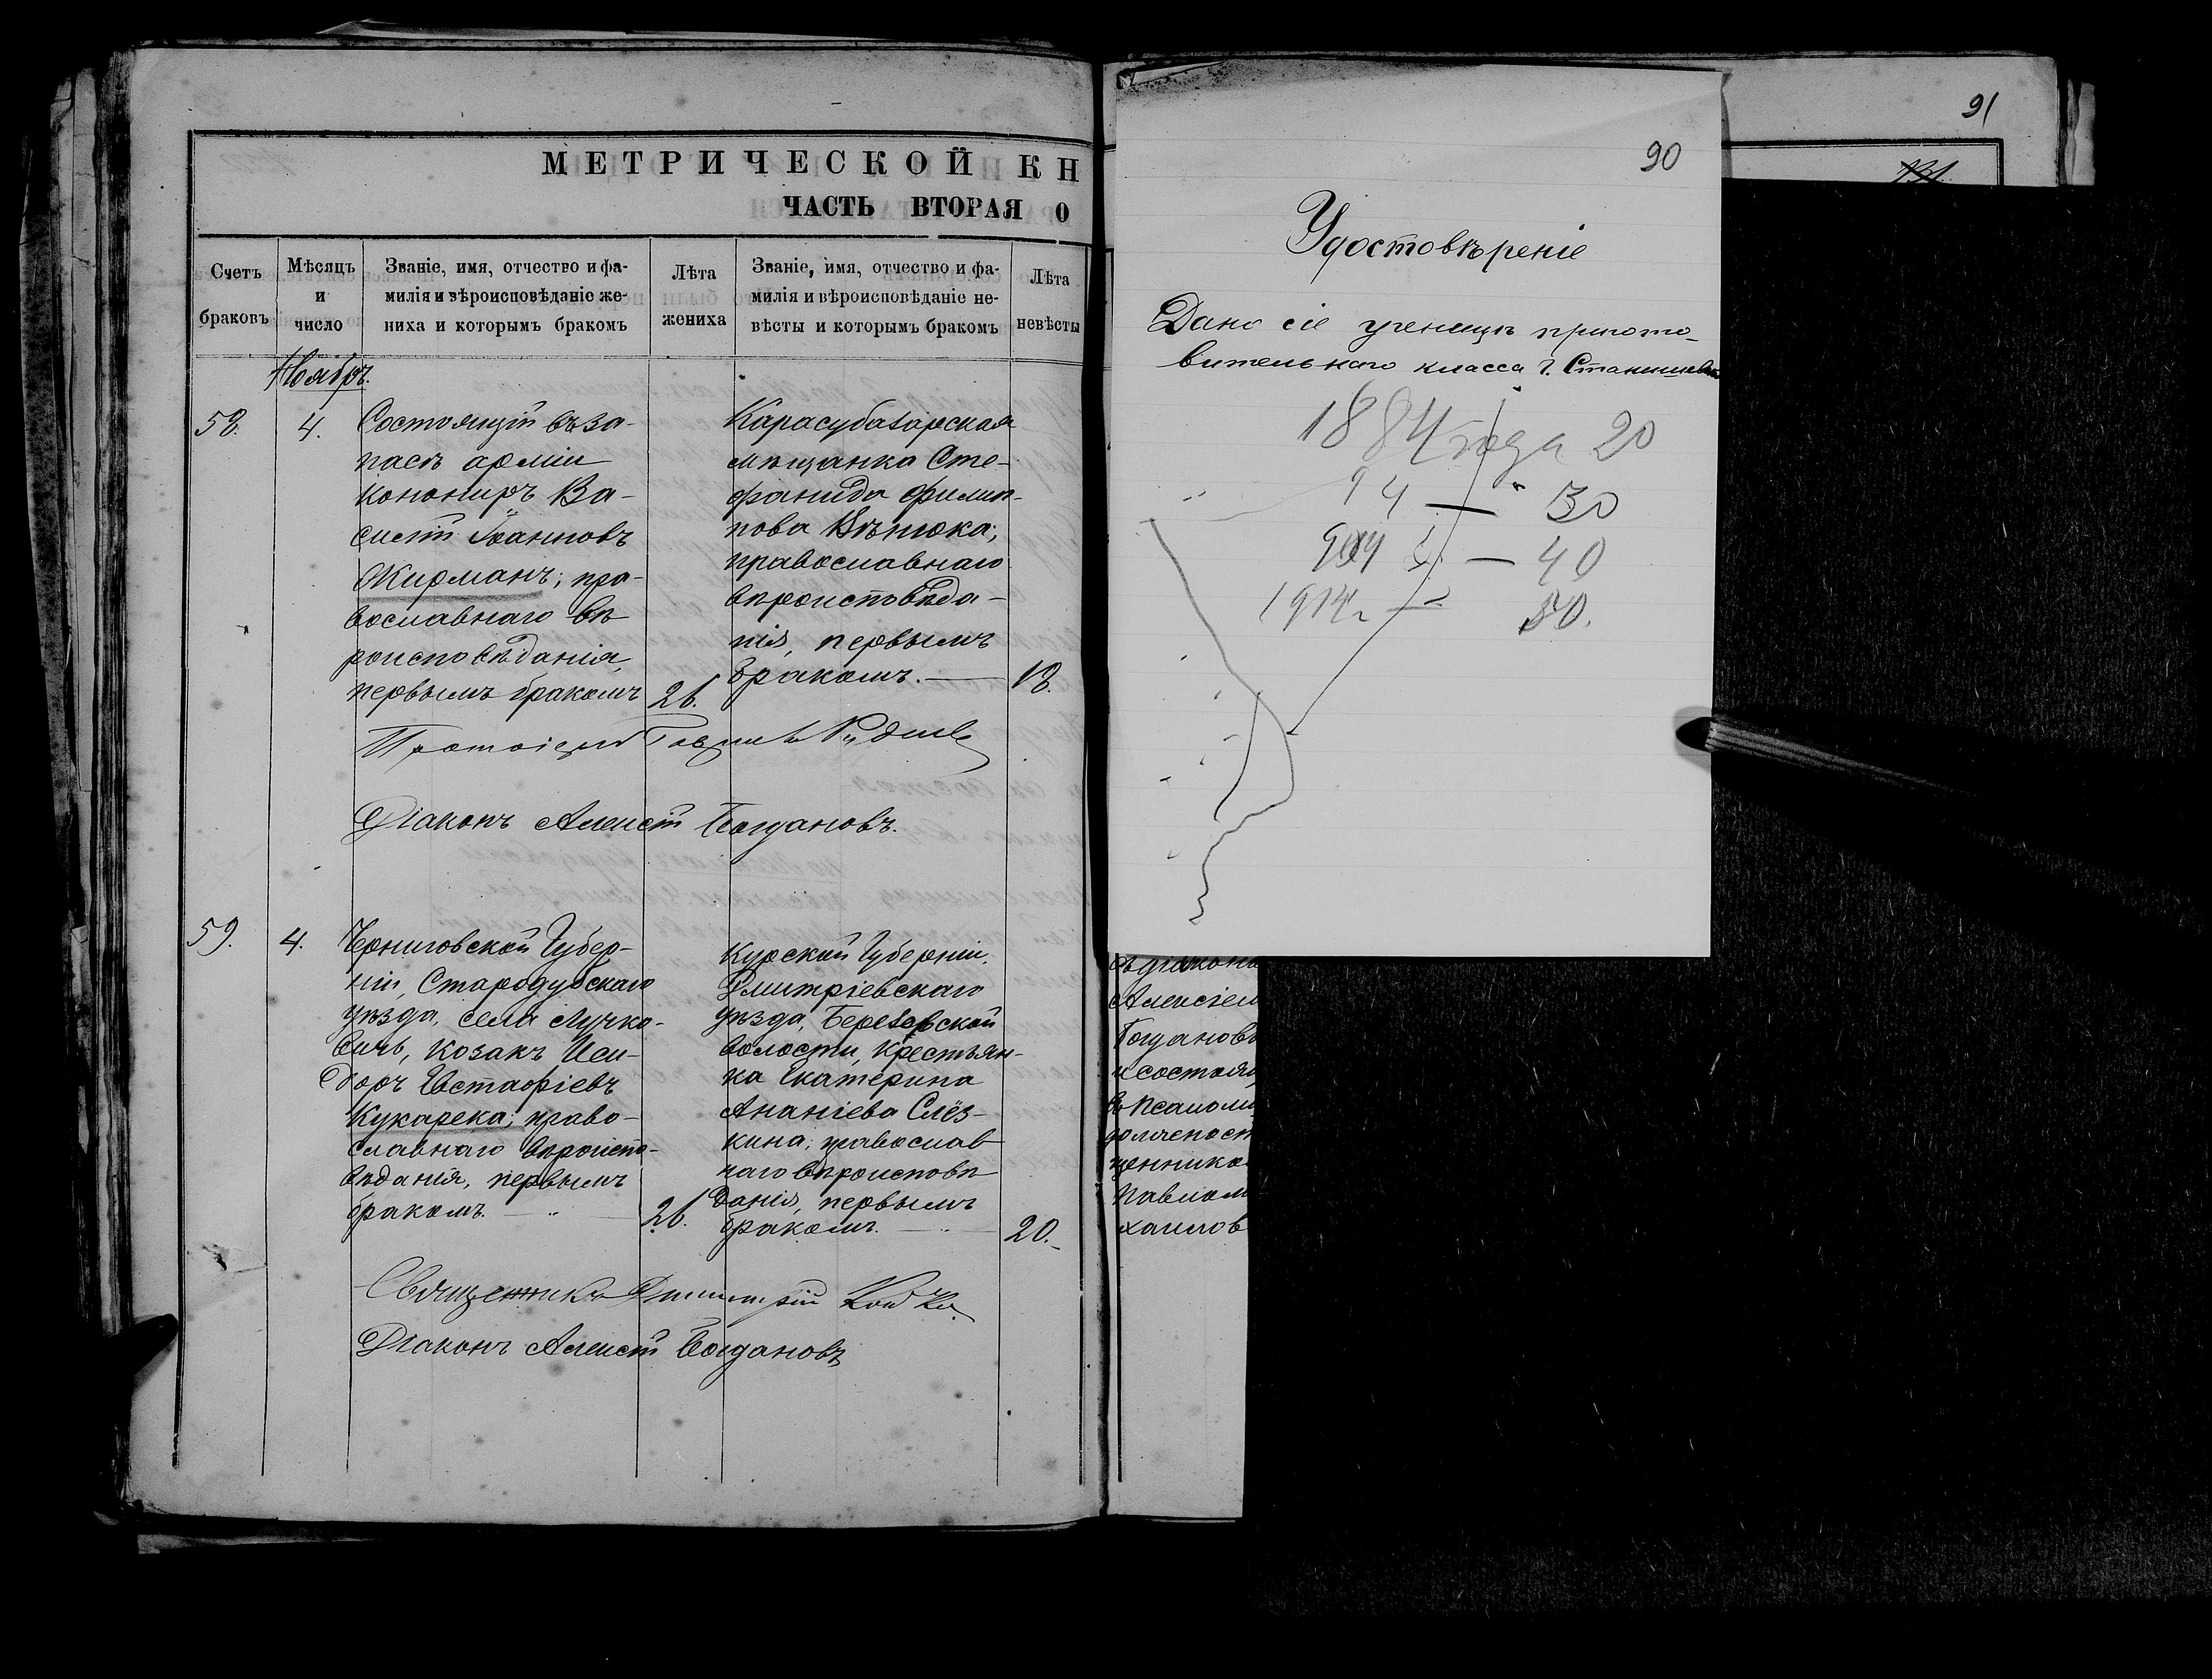 МЕТРИЧЕСКОЙ КН
ЧАСТЬ ВТОРАЯ О
Счетъ браковъ
Мѣсяцъ и число
Званіе, имя, отчество и фа-
милія и вѣроисповѣданіе же-
ниха и которымъ бракомъ
Лѣта жениха
Званіе, имя, отчество и фа-
милія и вѣроисповѣданіе не-
вѣсты и которымъ бракомъ
Лѣта невѣсты
Ноябрь.
58.
4.
Состоящій въ за-
пасѣ арміи
канониръ Ва-
силій Іоанновъ
Жирманъ; пра-
вославнаго вѣ
роисповѣданія,
первымъ бракомъ
26.
Карасубазарская
мѣщанка Сте-
фанида Филип-
пова
православнаго
вѣроисповѣда-
нія, первымъ
бракомъ.
18.
Протоіерей
Діаконъ Алексѣй Богдановъ.
59.
4.
Черниговской Губер-
ніи, Стародубскаго
уѣзда, села Лучко-
вичъ, козакъ Иси-
доръ Евстафіевъ
Кукарека; право-
славнаго вѣроиспо-
вѣданія, первымъ
бракомъ.
26.
Курской Губерніи,
Дмитріевскаго
уѣзда, Березовской
волости, крестьян-
ка Екатерина
Ананіева Слёз-
кина; православ
наго вѣроисповѣ
данія, первымъ
бракомъ.
20.
Священникъ Димитрій Койко
Діаконъ Алексѣй Богдановъ
90
Удостовѣреніе
Дано сіе ученицѣ пригото-
вительнаго класса Г.
1884 года 20
94 — " 30
904 — 40
1914 г — 50.
91
діакон
Алексіем
Богданов
и состоящ
ѣ псалом
должност
щеннико
Павлом
хаилов